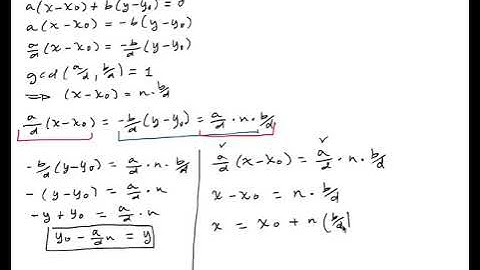 a(x-x₀)+b(y-y₀)=0
a(x-x₀) = -b(y-y₀)
a/d(x-x₀) = -b/d(y-y₀)
gcd(a/d, b/d) = 1
⟹ (x-x₀) = n·b/d
a/d(x-x₀) = -b/d(y-y₀) = a/d·n·b/d
-b/d(y-y₀) = a/d·n·b/d
-(y-y₀) = a/d·n
-y+y₀ = a/d·n
y₀ - a/d n = y
a/d(x-x₀) = a/d·n·b/d
x-x₀ = n·b/d
x = x₀ + n(b/d)